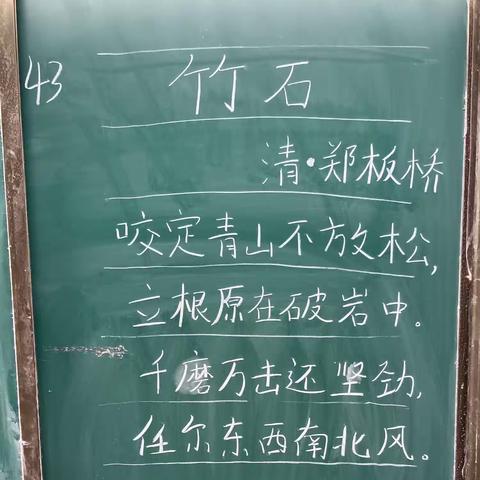 43 竹石
清·郑板桥
咬定青山不放松,
立根原在破岩中。
千磨万击还坚劲,
任尔东西南北风。